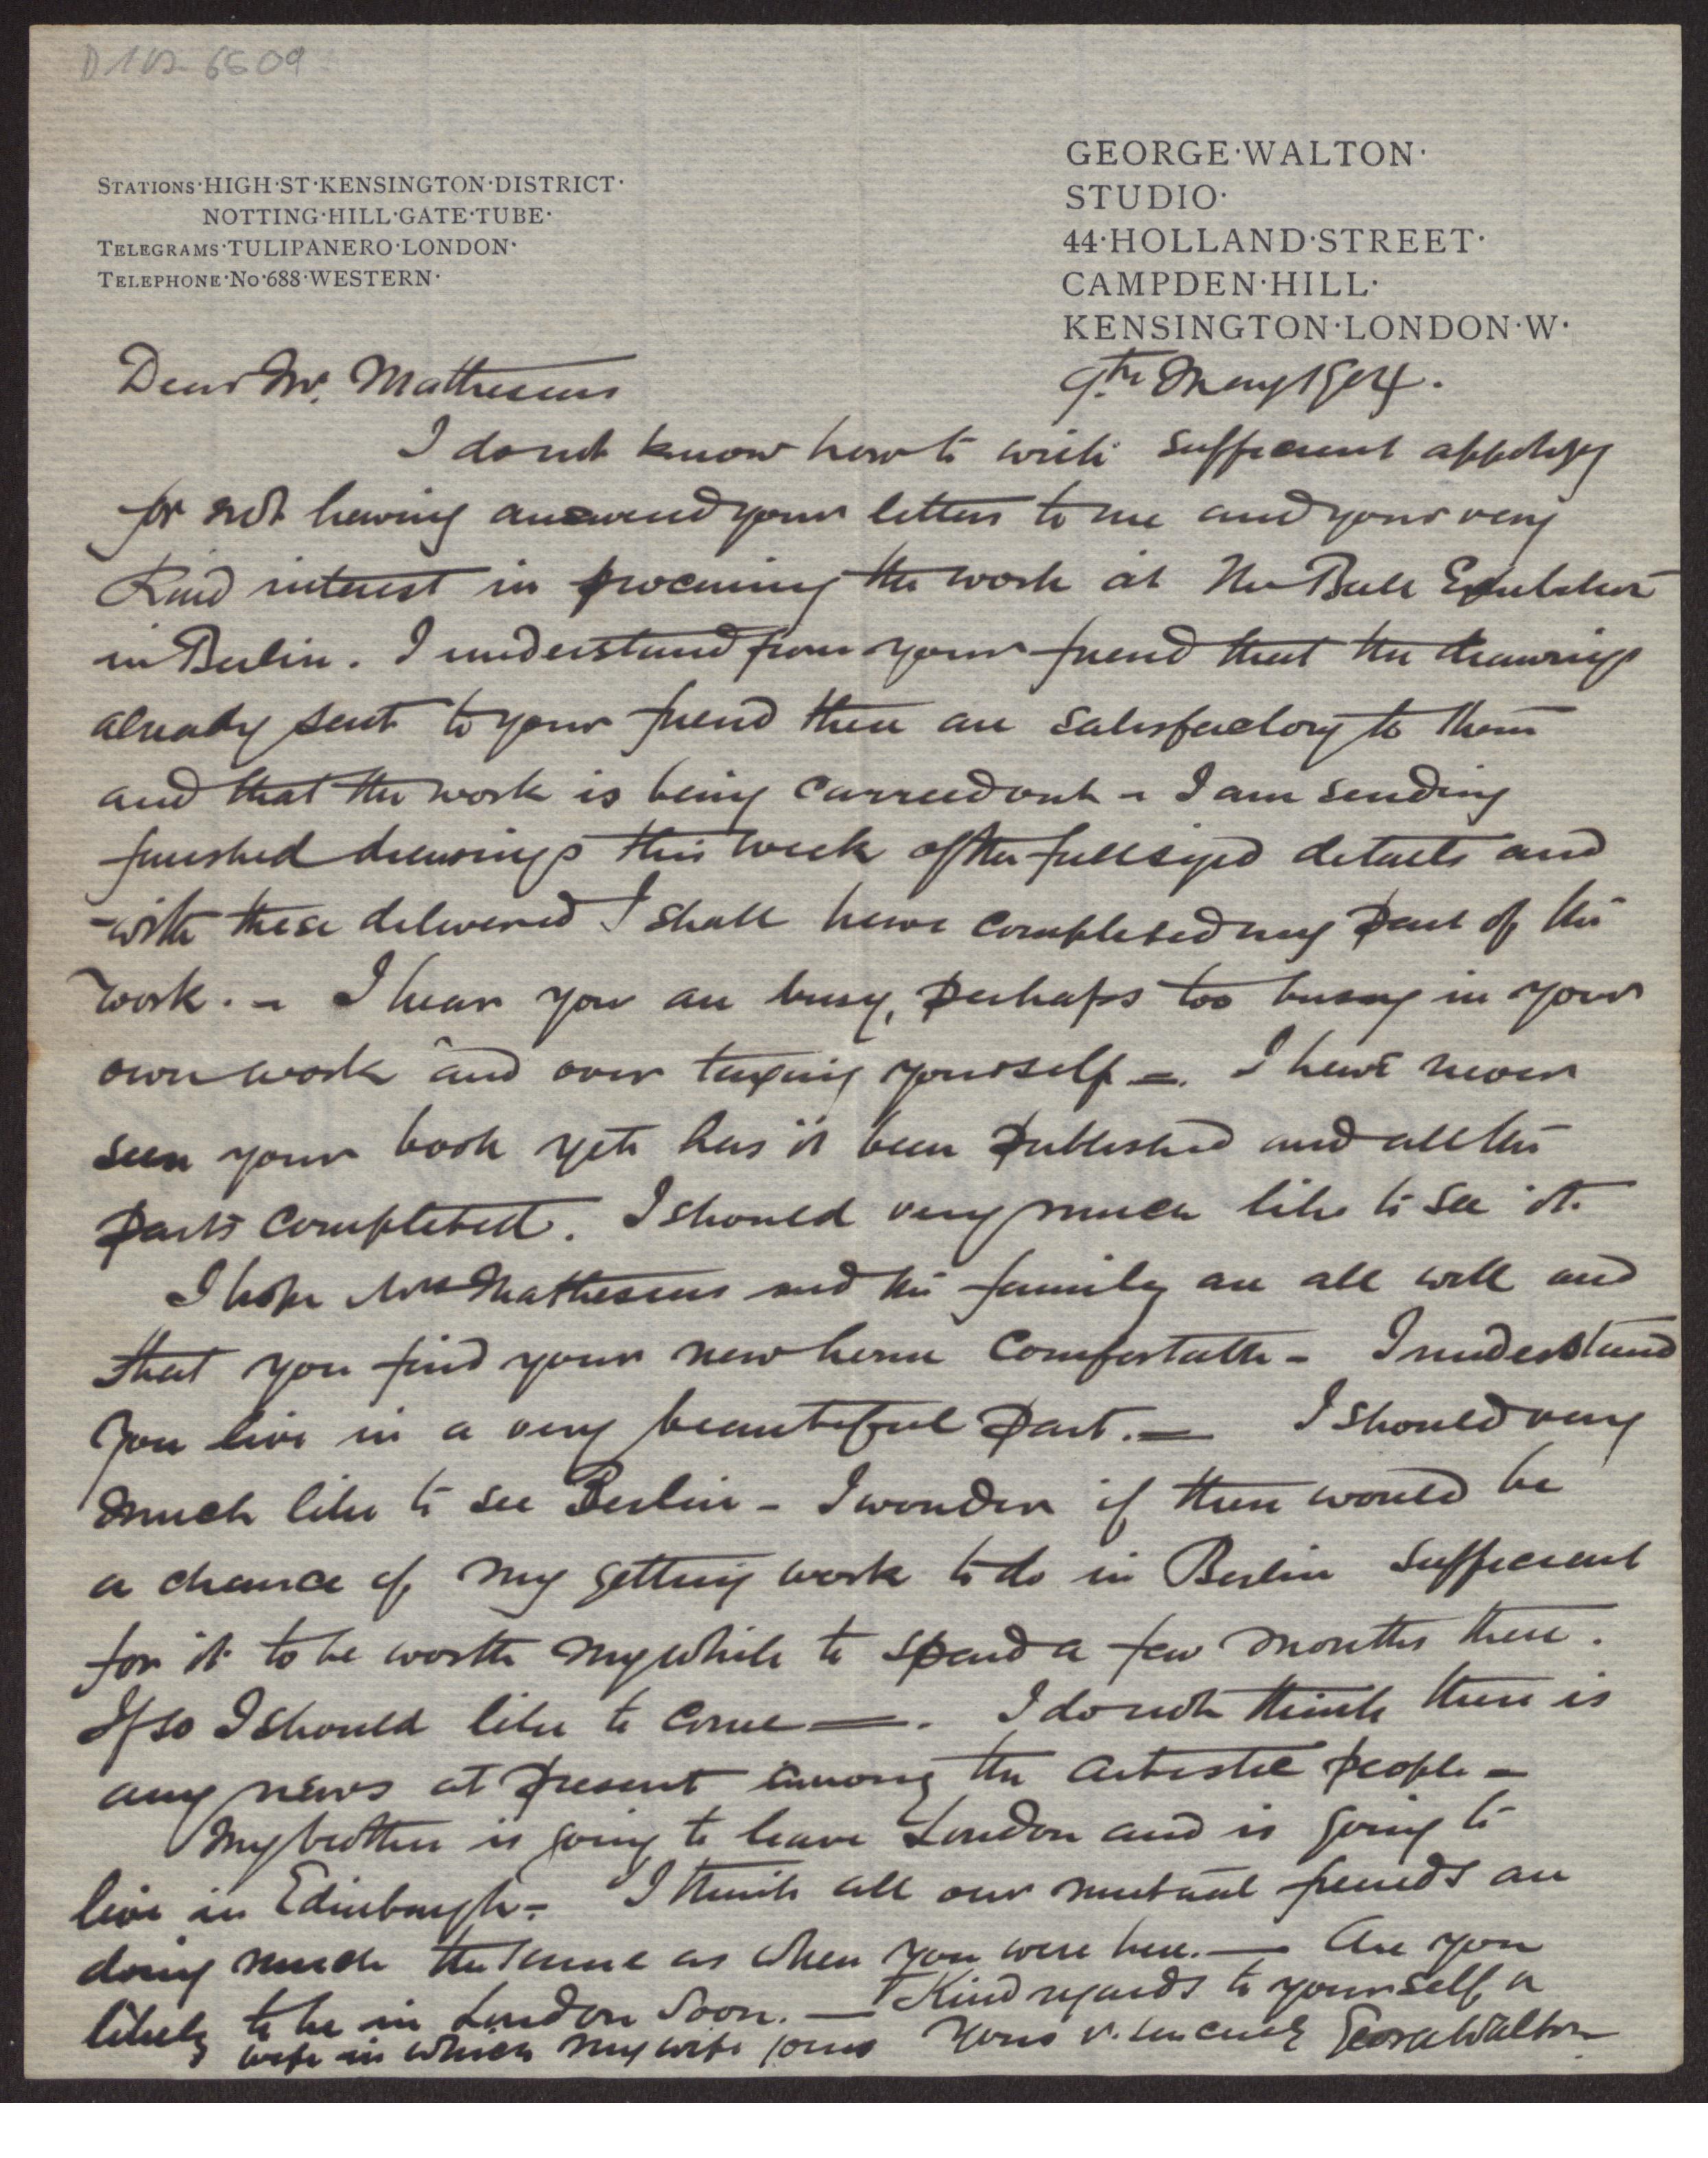 D 102-6509
STATIONS·HIGH·ST·KENSINGTON·DISTRICT·
NOTTING·HILL·GATE·TUBE·
TELEGRAMS·TULIPANERO·LONDON·
TELEPHONE·No·688·WESTERN·
GEORGE·WALTON·
STUDIO·
44·HOLLAND·STREET·
CAMPDEN·HILL·
KENSINGTON·LONDON·W·
9th May 1904.
Dear Mr. Mathesius
I do not know how to write sufficient appology
for not having answered your letters to me and your very
kind interest in procuring the work at the Exhibition
in Berlin. I understand from your friend that the drawings
already sent to your friend there are satisfactory to them
and that the work is being carried out - I am sending
finished drawings this week of the full sized details and
with these delivered I shall have completed my part of the
work. - I hear you are busy, perhaps too busy in your
own work and over taxing yourself =. I have never
seen your book yet. has it been published and all the
parts completed. I should very much like to see it.
I hope Mrs Mathesius and the family are all well and
that you find your new home comfortable - I understand
you live in a very beautiful part. = I should very
much like to see Berlin - I wonder if there would be
a chance of my getting work to do in Berlin sufficient
for it to be worth my while to spend a few months there.
If so I should like to come =. I do not think there is
any news at present among the artistic people -
My brother is going to leave London and is going to
live in Edinburgh - I think all our mutual friends are
doing much the same as when you were here. — Are you
likely to be in London soon. — Kind regards to yourself &
wife in which my wife joins Yours v. sincerely George Walton